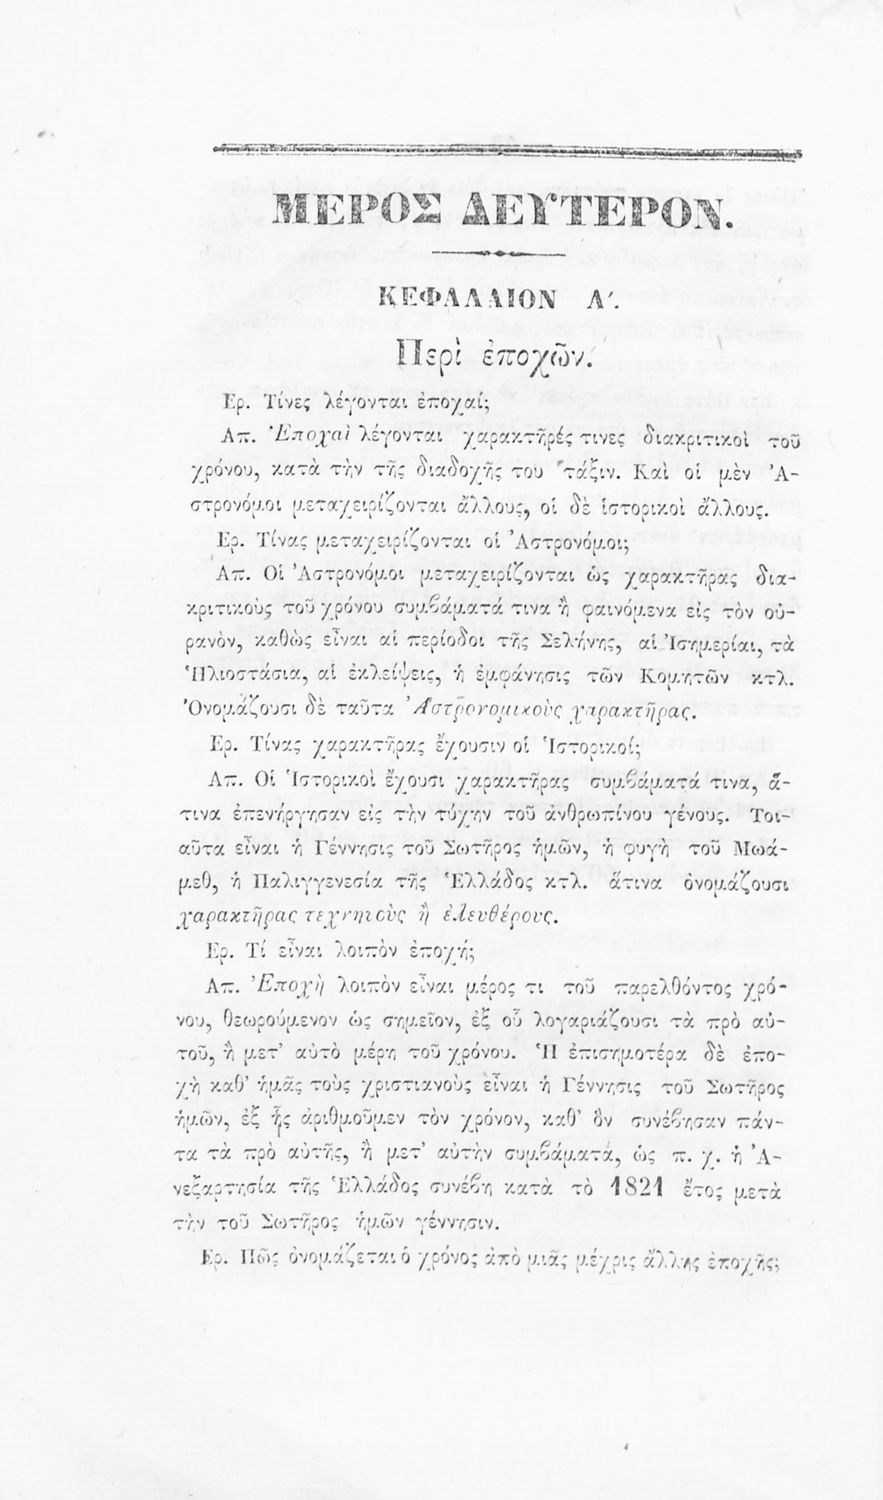 ΜΕΡΟΣ ΔΕΥΤΕΡΟΝ.
ΚΕΦΑΛΑΙΟΝ Α΄.
Περὶ ἐποχῶν.
Ερ. Τίνες λέγονται ἐποχαί;
Απ. Ἐποχαὶ λέγονται χαρακτῆρές τινες διακριτικοὶ τοῦ
χρόνου, κατὰ τὴν τῆς διαδοχῆς του τάξιν. Καὶ οἱ μὲν Ἀ-
στρονόμοι μεταχειρίζονται ἄλλους, οἱ δὲ ἱστορικοὶ ἄλλους.
Ερ. Τίνας μεταχειρίζονται οἱ Ἀστρονόμοι;
Απ. Οἱ Ἀστρονόμοι μεταχειρίζονται ὡς χαρακτῆρας δια-
κριτικοὺς τοῦ χρόνου συμβάματά τινα ἢ φαινόμενα εἰς τὸν οὐ-
ρανὸν, καθὼς εἶναι αἱ περίοδοι τῆς Σελήνης, αἱ Ἰσημερίαι, τὰ
Ἡλιοστάσια, αἱ ἐκλείψεις, ἡ ἐμφάνησις τῶν Κομητῶν κτλ.
Ὀνομάζουσι δὲ ταῦτα Ἀστρονομικοὺς χαρακτῆρας.
Ερ. Τίνας χαρακτῆρας ἔχουσιν οἱ Ἱστορικοί;
Απ. Οἱ Ἱστορικοὶ ἔχουσι χαρακτῆρας συμβάματά τινα, ἅ-
τινα ἐπενήργησαν εἰς τὴν τύχην τοῦ ἀνθρωπίνου γένους. Τοι-
αῦτα εἶναι ἡ Γέννησις τοῦ Σωτῆρος ἡμῶν, ἡ φυγὴ τοῦ Μωά-
μεθ, ἡ Παλιγγενεσία τῆς Ἑλλάδος κτλ. ἅτινα ὀνομάζουσι
χαρακτῆρας τεχνητοὺς ἢ ἐλευθέρους.
Ερ. Τί εἶναι λοιπὸν ἐποχή;
Απ. Ἐποχὴ λοιπὸν εἶναι μέρος τι τοῦ παρελθόντος χρό-
νου, θεωρούμενον ὡς σημεῖον, ἐξ οὗ λογαριάζουσι τὰ πρὸ αὐ-
τοῦ, ἢ μετ' αὐτὸ μέρη τοῦ χρόνου. Ἡ ἐπισημοτέρα δὲ ἐπο-
χὴ καθ' ἡμᾶς τοὺς χριστιανοὺς εἶναι ἡ Γέννησις τοῦ Σωτῆρος
ἡμῶν, ἐξ ἧς ἀριθμοῦμεν τὸν χρόνον, καθ' ὃν συνέβησαν πάν-
τα τὰ πρὸ αὐτῆς, ἢ μετ' αὐτὴν συμβάματα, ὡς π. χ. ἡ Ἀ-
νεξαρτησία τῆς Ἑλλάδος συνέβη κατὰ τὸ 1821 ἔτος μετὰ
τὴν τοῦ Σωτῆρος ἡμῶν γέννησιν.
Ερ. Πῶς ὀνομάζεται ὁ χρόνος ἀπὸ μιᾶς μέχρις ἄλλης ἐποχῆς;